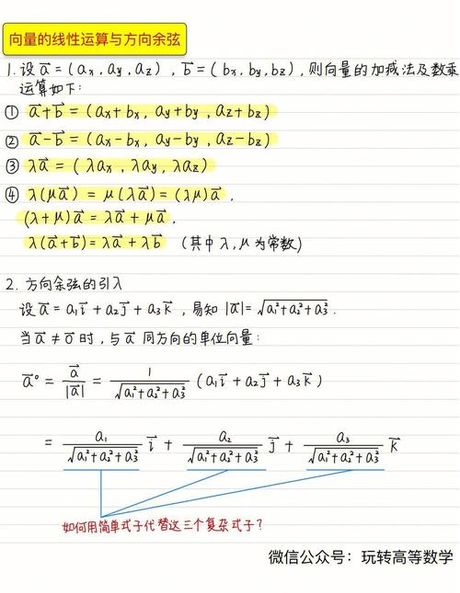 向量的线性运算与方向余弦
1. 设 a⃗ = (ax, ay, az), b⃗ = (bx, by, bz), 则向量的加减法及数乘
运算如下:
① a⃗+b⃗ = (ax+bx, ay+by, az+bz)
② a⃗-b⃗ = (ax-bx, ay-by, az-bz)
③ λa⃗ = (λax, λay, λaz)
④ λ(μa⃗) = μ(λa⃗) = (λμ)a⃗,
(λ+μ)a⃗ = λa⃗ + μa⃗,
λ(a⃗+b⃗) = λa⃗ + λb⃗ (其中 λ, μ 为常数)
2. 方向余弦的引入
设 a⃗ = a₁i⃗ + a₂j⃗ + a₃k⃗, 易知 |a⃗| = √(a₁²+a₂²+a₃²).
当 a⃗ ≠ 0⃗ 时, 与 a⃗ 同方向的单位向量:
a⃗° = a⃗/|a⃗| = 1/√(a₁²+a₂²+a₃²) (a₁i⃗ + a₂j⃗ + a₃k⃗)
= a₁/√(a₁²+a₂²+a₃²) i⃗ + a₂/√(a₁²+a₂²+a₃²) j⃗ + a₃/√(a₁²+a₂²+a₃²) k⃗
如何用简单式子代替这三个复杂式子?
微信公众号: 玩转高等数学